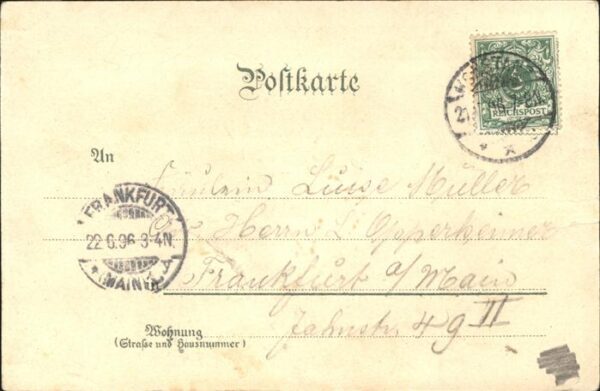 Postkarte
REICHSPOST
An
Fräulein Luise Müller
Herrn L. Opperheimer
FRANKFURT
22 6.96 3-4N.
(MAIN)
Frankfurt a/Main
Wohnung
(Straße und Hausnummer)
Jahnstr. 49 II